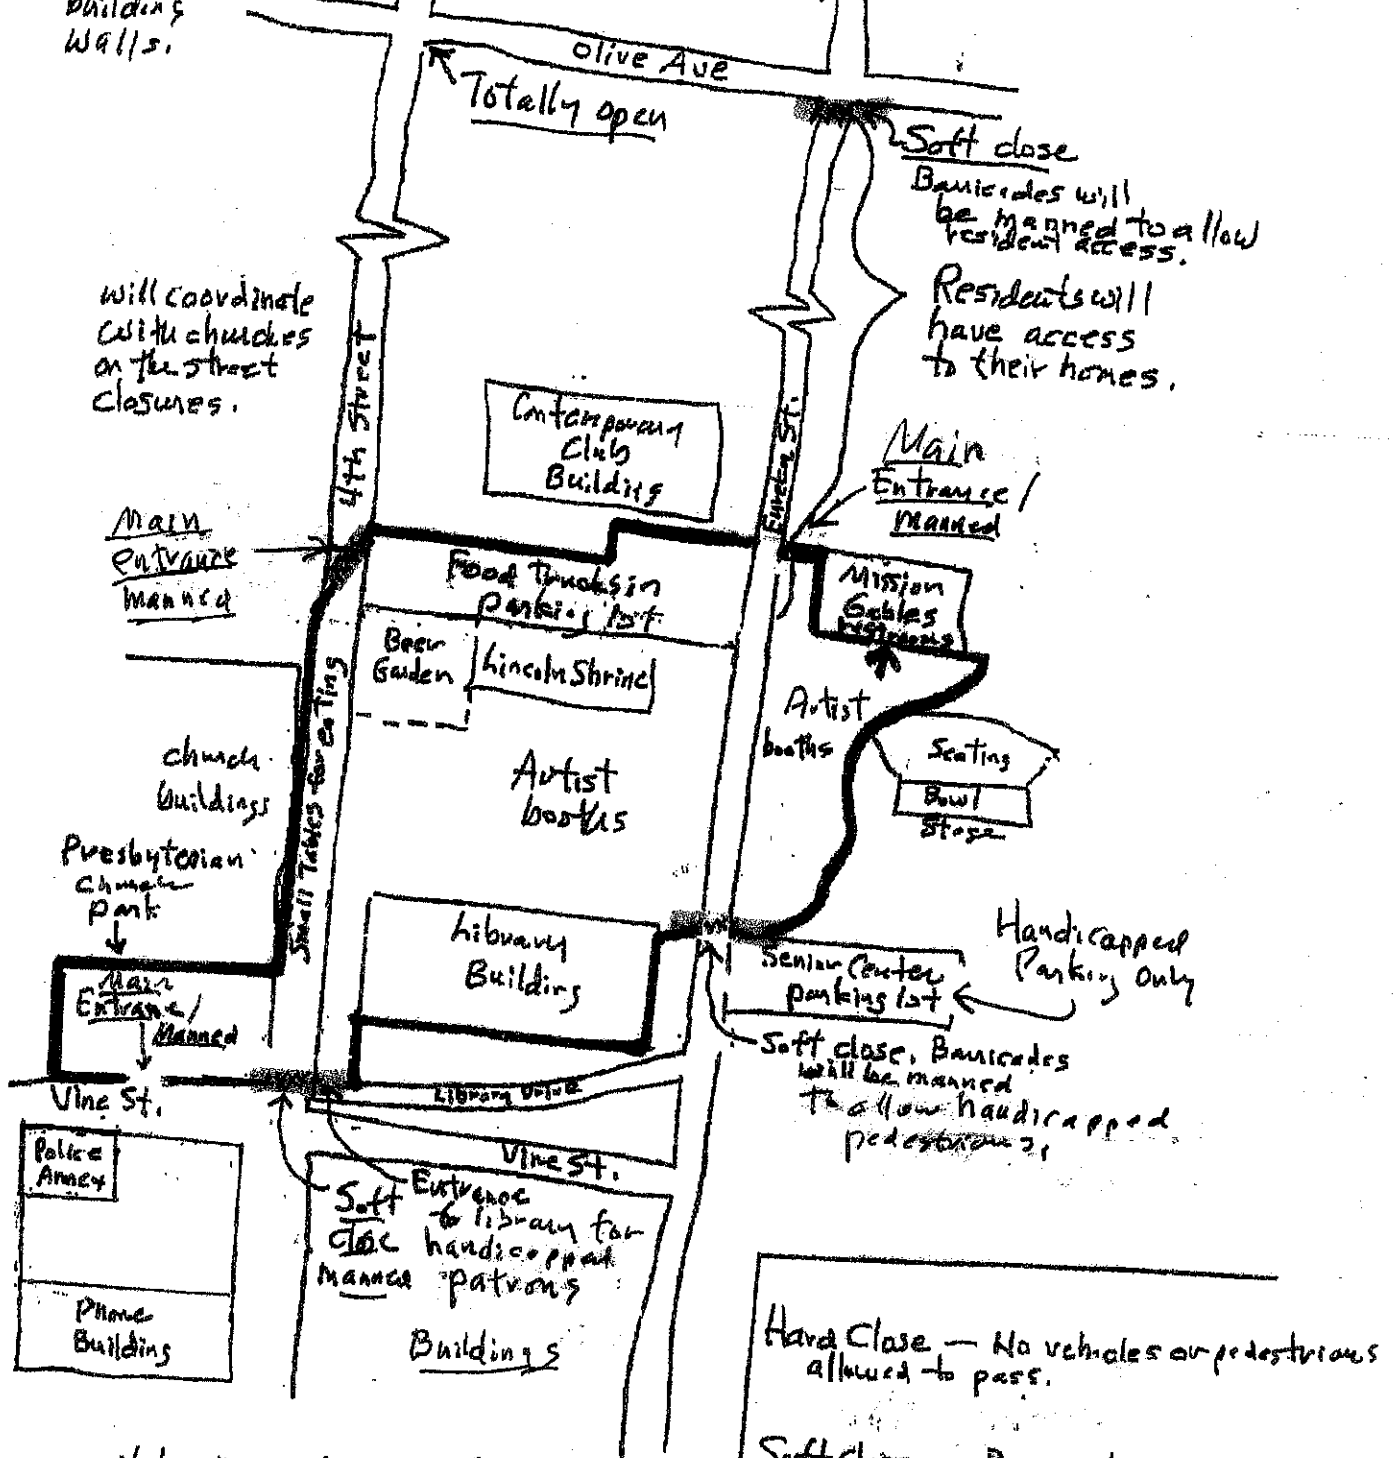 Building
Walls.
Olive Ave
Totally open
Soft close
Barricades will
be manned to allow
resident access.
Residents will
have access
to their homes.
will coordinate
with churches
on the street
closures.
4th Street
Contemporary
Club
Building
Eureka St.
Main
Entrance/
Manned
Main
entrance
manned
Food Trucks in
parking lot
Mission
Gables
Beer
Garden
Lincoln Shrine
Small Tables for eating
Artist
booths
Artist
booths
Seating
Bowl
Stage
church
buildings
Presbyterian
church
park
Main
Entrance/
Manned
Library
Building
Senior Center
parking lot
Handicapped
Parking Only
Soft close. Barricades
will be manned
to allow handicapped
pedestrians.
Vine St.
Library Drive
Vine St.
Police
Annex
Soft
close
manned
Entrance
to library for
handicapped
patrons
Phone
Building
Buildings
Hard Close — No vehicles or pedestrians
allowed to pass.